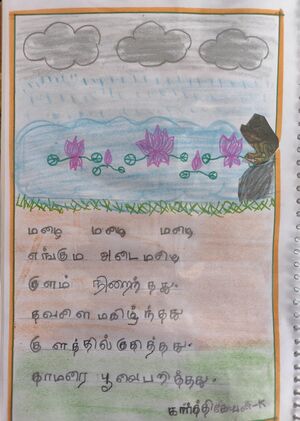 மழை மழை மழை
எங்கும் அடை மழை
குளம் நிறைந்தது.
தவளை மகிழ்ந்தது
குளத்தில் குதித்தது.
தாமரை பூவை பறித்தது.
கார்த்திகேயன்-K